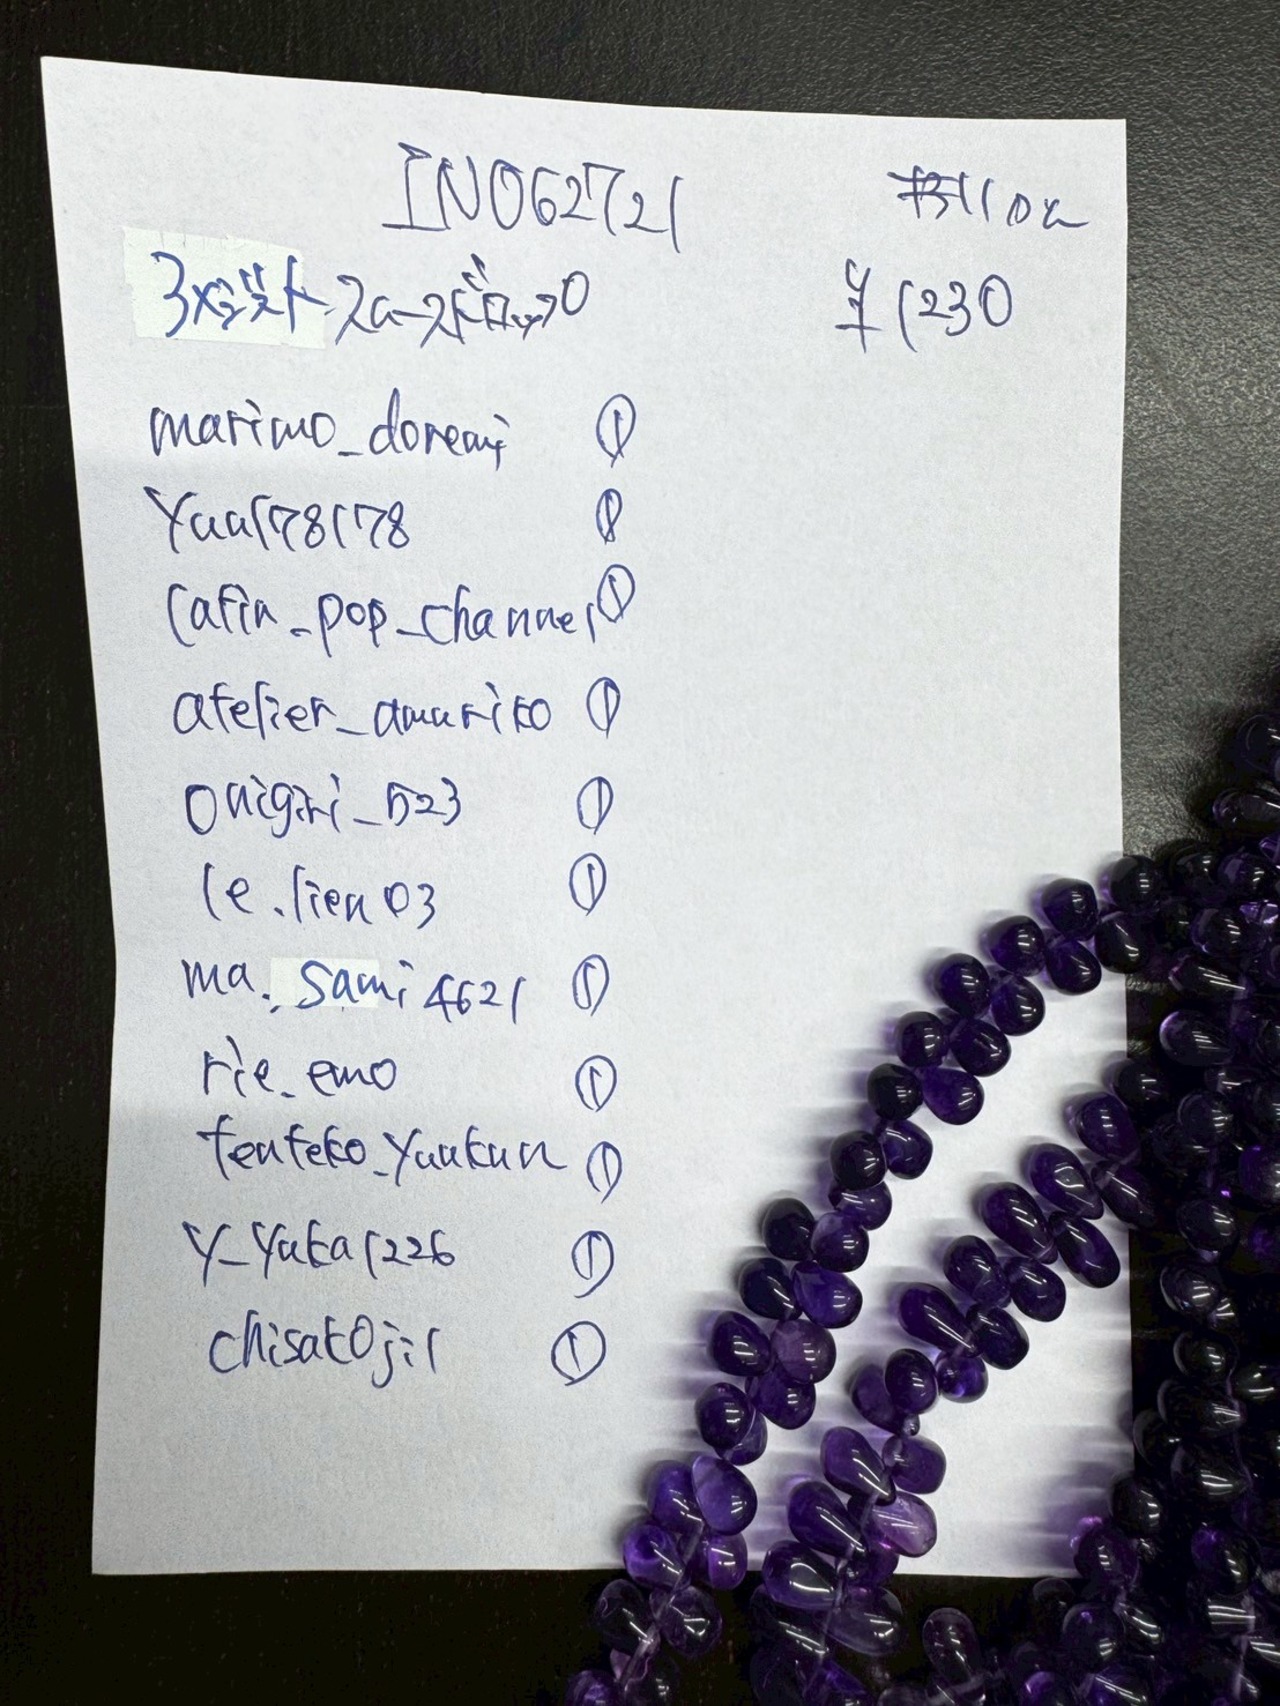 IN062721
¥1230
marimo_doremi ①
Yaa178178 ①
lafin_pop_channel ①
atelier_amuriko ①
onigiri_523 ①
le.lien03 ①
ma.sami4621 ①
rie_emo ①
tenteko_yuukun ①
y_yuka1226 ①
chisat0ji1 ①